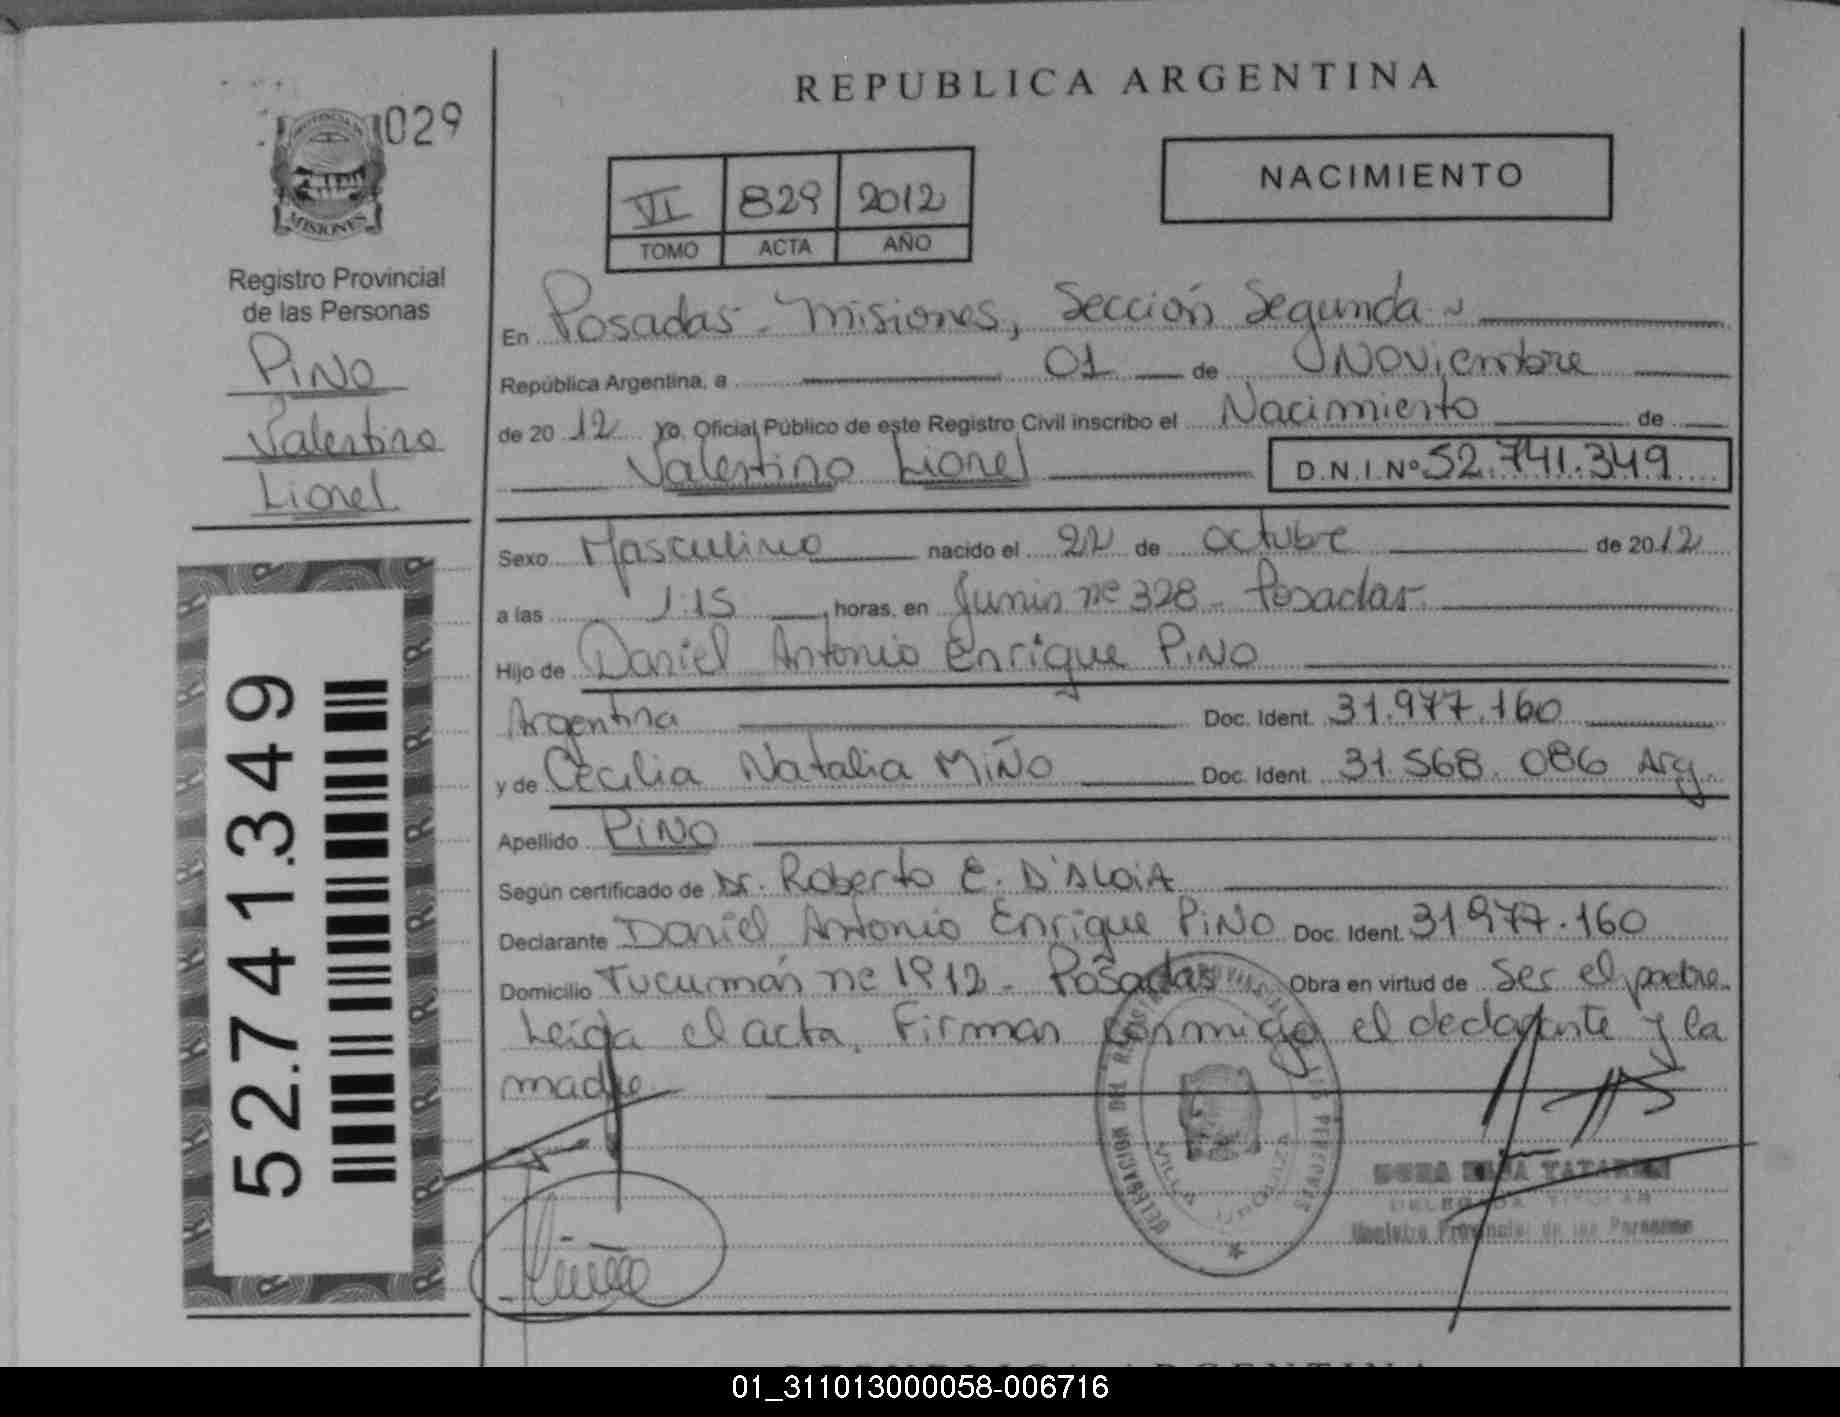 029
PROVINCIA DE
MISIONES
Registro Provincial
de las Personas
PINO
Valentino
Lionel
52.741.349
REPUBLICA ARGENTINA
NACIMIENTO
VI 829 2012
TOMO ACTA AÑO
En Posadas - Misiones, Sección Segunda
República Argentina, a 01 de Noviembre
de 2012 yo, Oficial Público de este Registro Civil inscribo el Nacimiento de
Valentino Lionel D.N.I.Nº 52.741.349
Sexo Masculino nacido el 22 de octubre de 2012
a las 1.15 horas, en Junin nº 328 - Posadas
Hijo de Daniel Antonio Enrique PINO
Argentina Doc. Ident. 31.977.160
y de Cecilia Natalia MIÑO Doc. Ident. 31.568.086 Arg.
Apellido PINO
Según certificado de Dr. Roberto E. D'ALOIA
Declarante Daniel Antonio Enrique PINO Doc. Ident. 31977.160
Domicilio Tucumán nº 1912 - Posadas Obra en virtud de ser el padre.
Leída el acta, Firman conmigo el declarante y la
madre
DELEGACION DEL REGISTRO PROVINCIAL DE LAS PERSONAS
VILLA URQUIZA
Registro Provincial de las Personas
REPUBLICA ARGENTINA
01_311013000058-006716